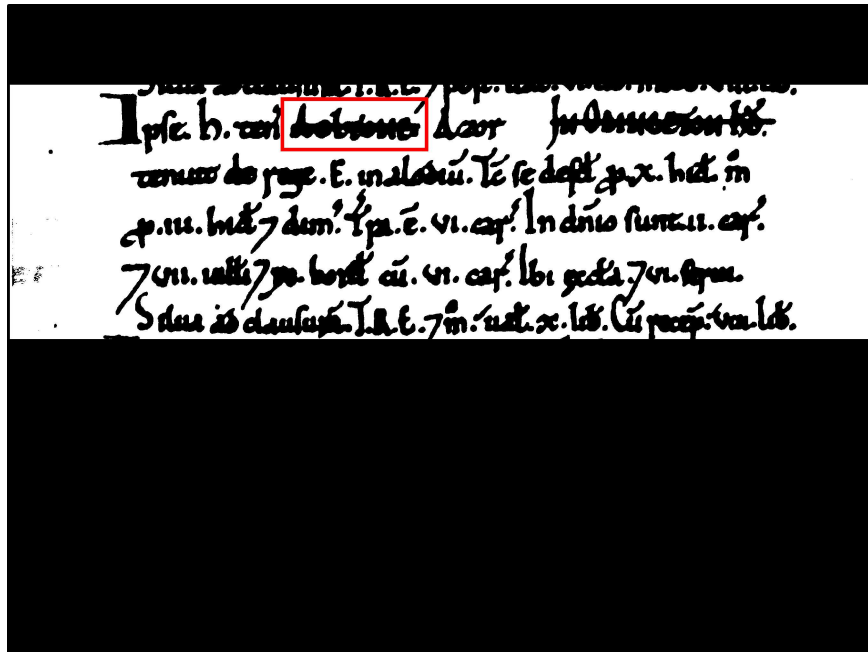 Silua ad clausurā. T.R.E. 7 post. ual.
Ipse. h. ten' Azor
tenuit de rege. E. in alodiū. Tc̄ se defd̄ p. x. hid̄. m̊
p. iii. hid̄ 7 dim̄. Tr̄a. ē. vi. car̄. In dn̄io sunt. ii. car̄.
7 vii. uilli 7 xv. bord̄ cū. vi. car̄. Ibi æccl̄a. 7 vi. serui.
Silua ad clausurā. T.R.E. 7 m̊. ual̄. x. lib̄. Cū recep̄. viii. lib̄.